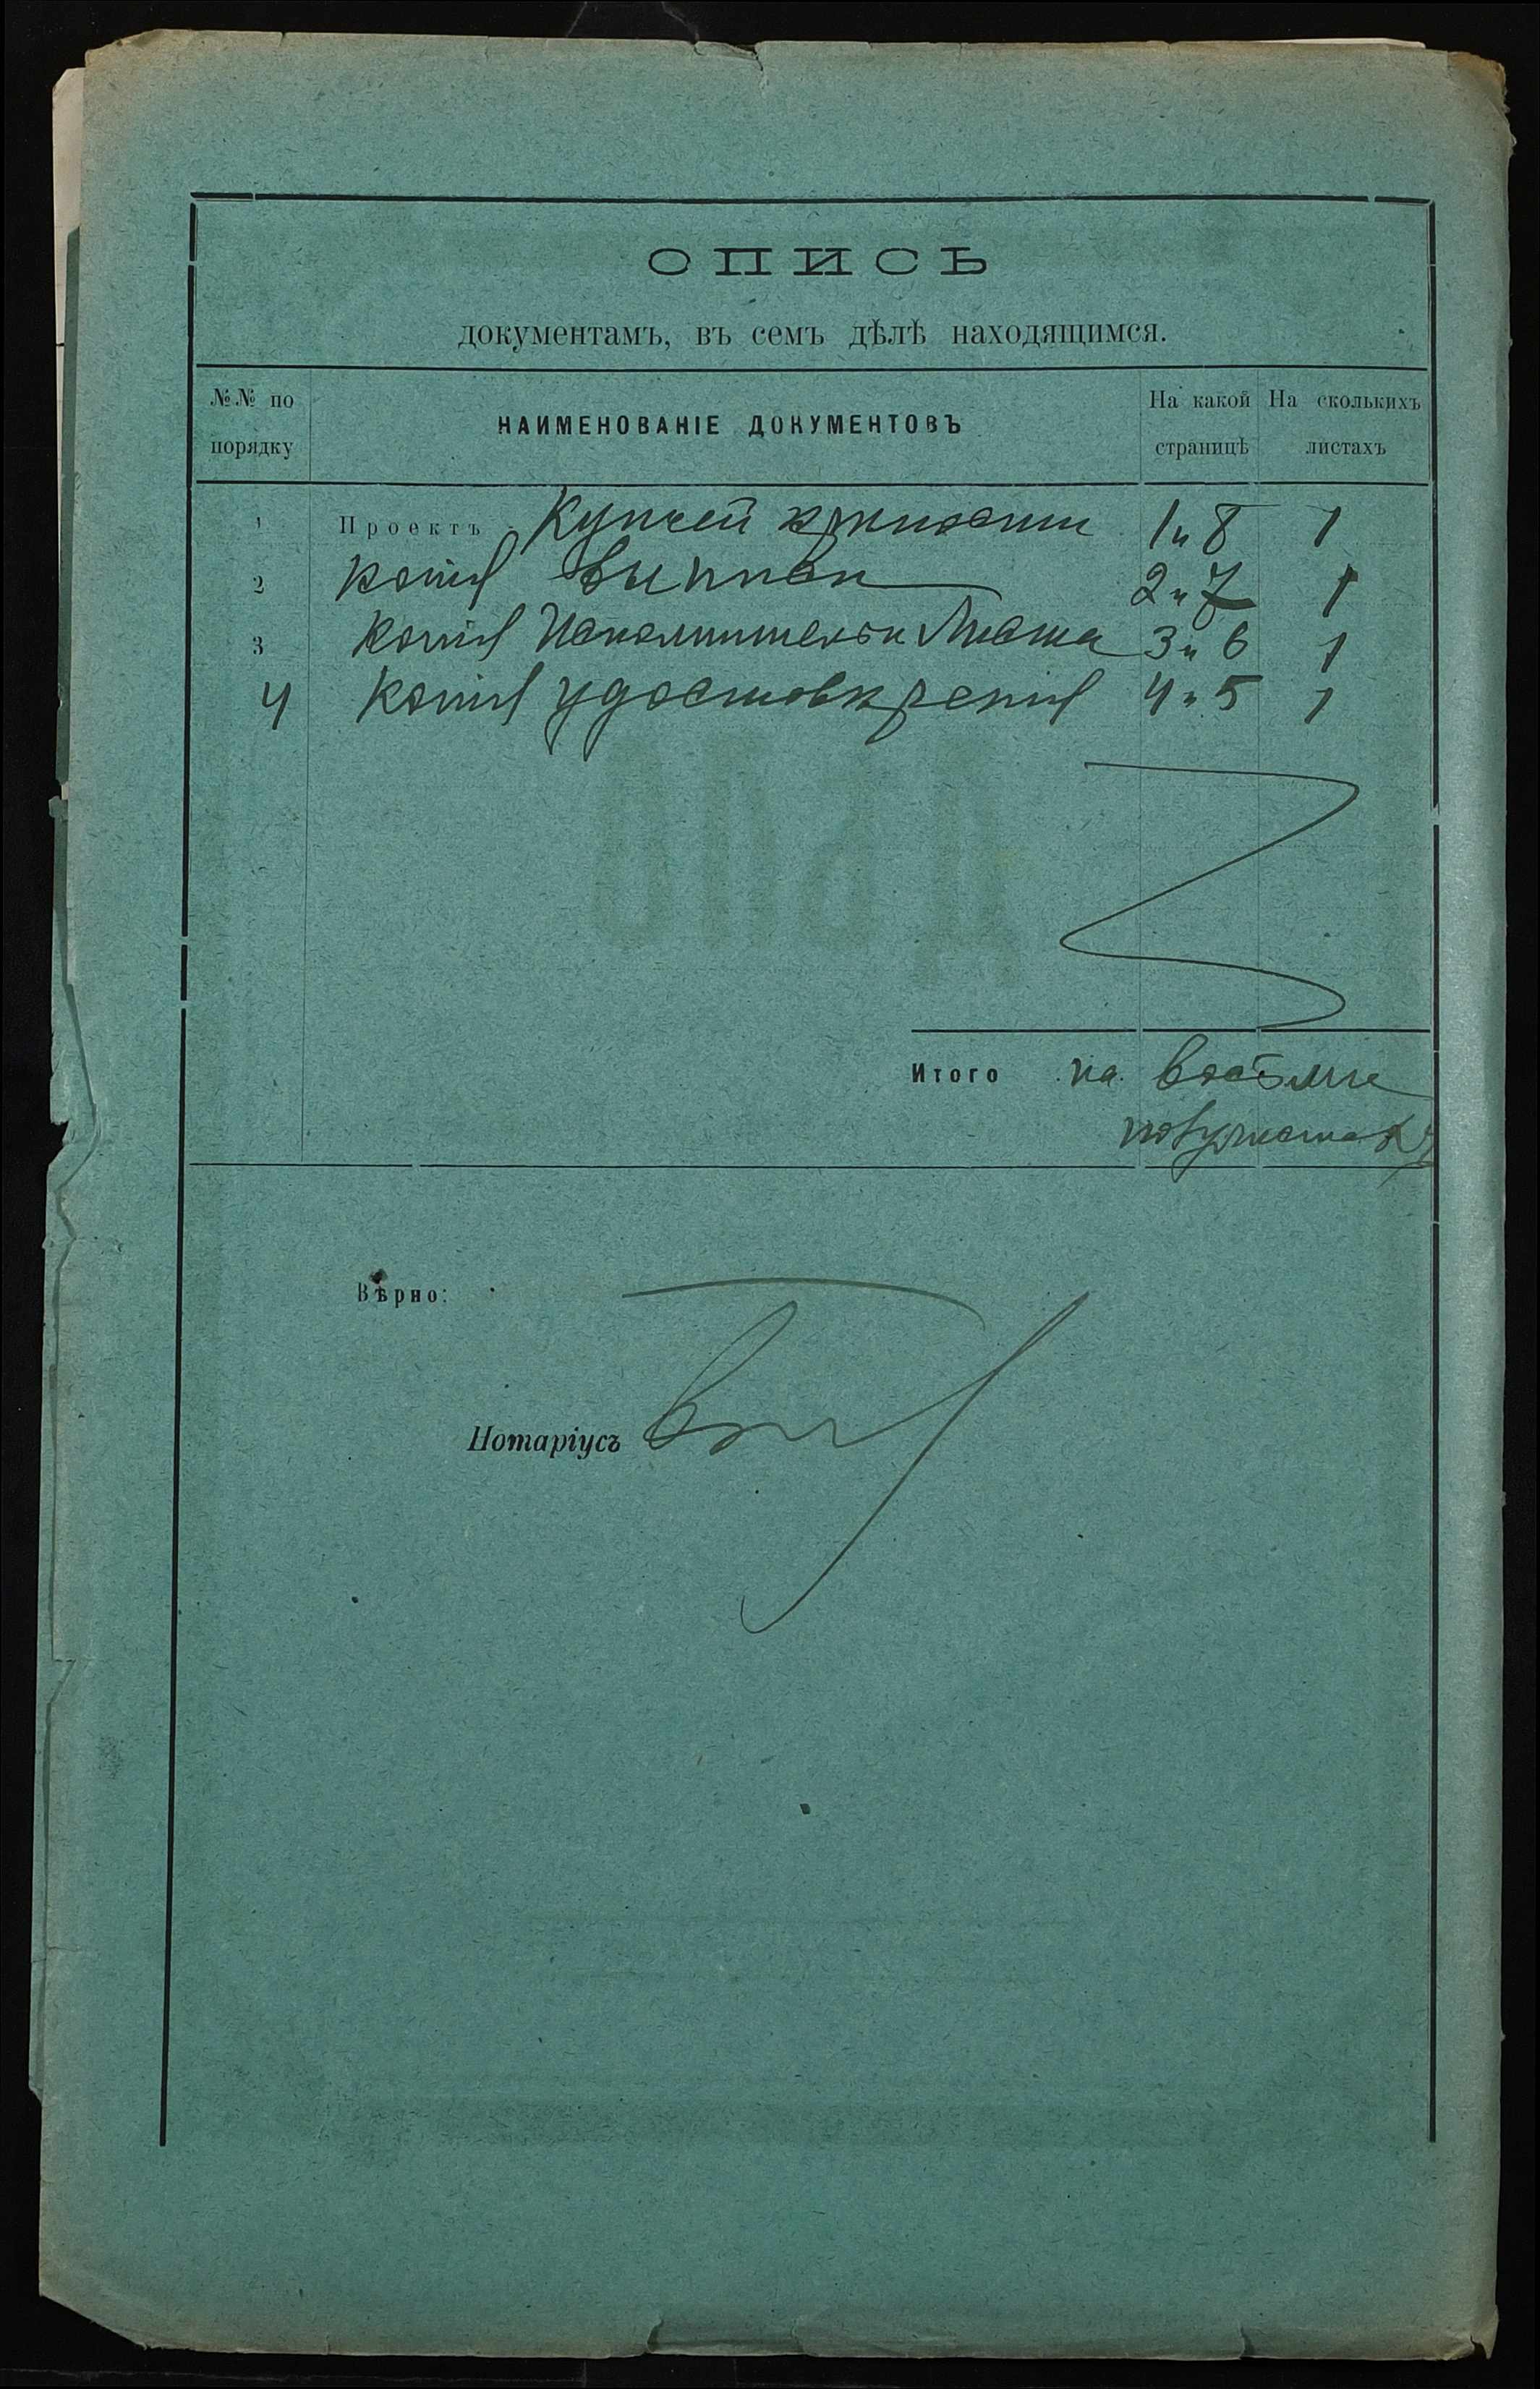 ОПИСЬ
документамъ, въ семъ дѣлѣ находящимся.
№№ по порядку
НАИМЕНОВАНІЕ ДОКУМЕНТОВЪ
На какой страницѣ
На сколькихъ листахъ
1 Проектъ Купчей крѣпости 1 и 8 1
2 Копія выписи 2 и 7 1
3 Копія Исполнительн Листа 3 и 6 1
4 Копія удостовѣренія 4 и 5 1
Итого на восьми
полулистахъ
Вѣрно:
Нотаріусъ
ДѢЛО